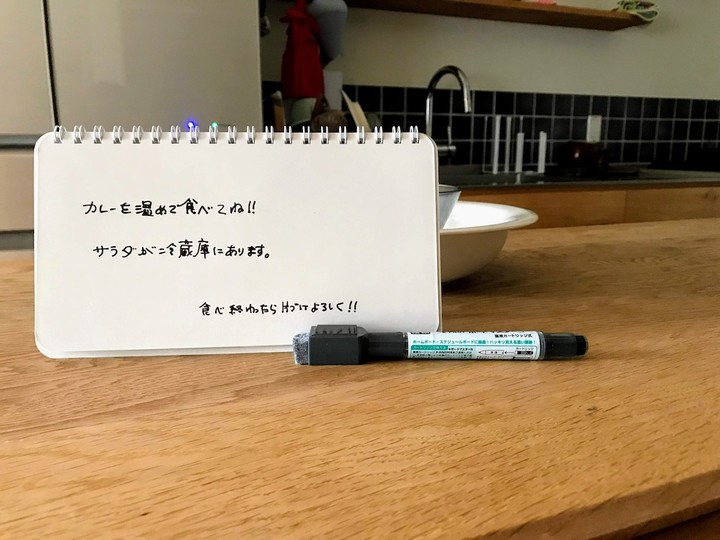 カレーを温めて食べてね!!
サラダが冷蔵庫にあります。
食べ終わったら片づけよろしく!!
カートリッジ式
ホームボード・スケジュールボードに最適！ハッキリ見える濃い筆跡！